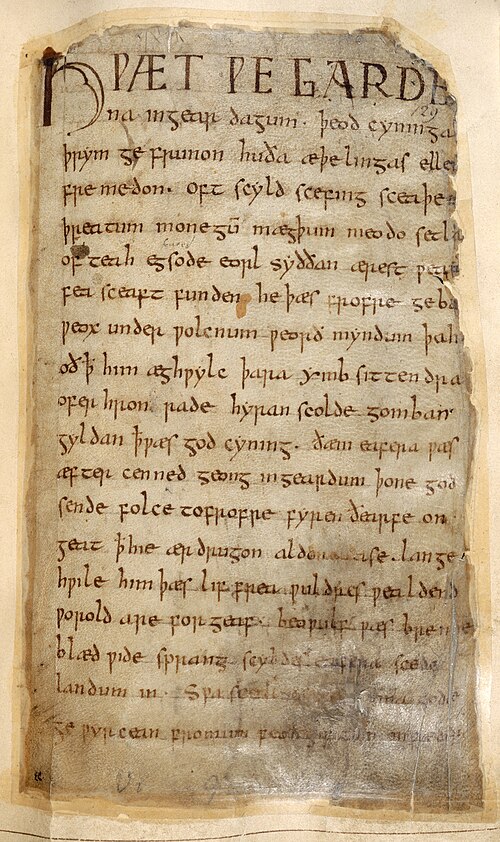 HǷÆT ǷE GARDE
na ingear dagum. þeod cyninga
þrym ge frunon huða æþelingas elle
fre medon. oft scyld scefing sceaþe
þreatum monegū mægþum meodo setla
of teah egsode eorl syððan ærest ƿear
fea sceaft funden he þæs frofre geba
ƿeox under ƿolcnum ƿeorð myndum þah
oð ꝥ him æghƿylc þara ymb sittendra
ofer hron rade hyran scolde gomban
gyldan ꝥ ƿæs god cyning. ðæm eafera ƿæs
æfter cenned geong ingeardum þone god
sende folce tofrofre fyren ðearfe on
geat ꝥ hie ær drugon aldor ase. lange
hƿile him þæs lif frea ƿuldres ƿealdend
ƿorold are for geaf. beoƿulf ƿæs breme
blæd ƿide sprang scyldes eafera scede
landum in. Sƿa sceal
ge ƿyrcean fromum feoh giftum